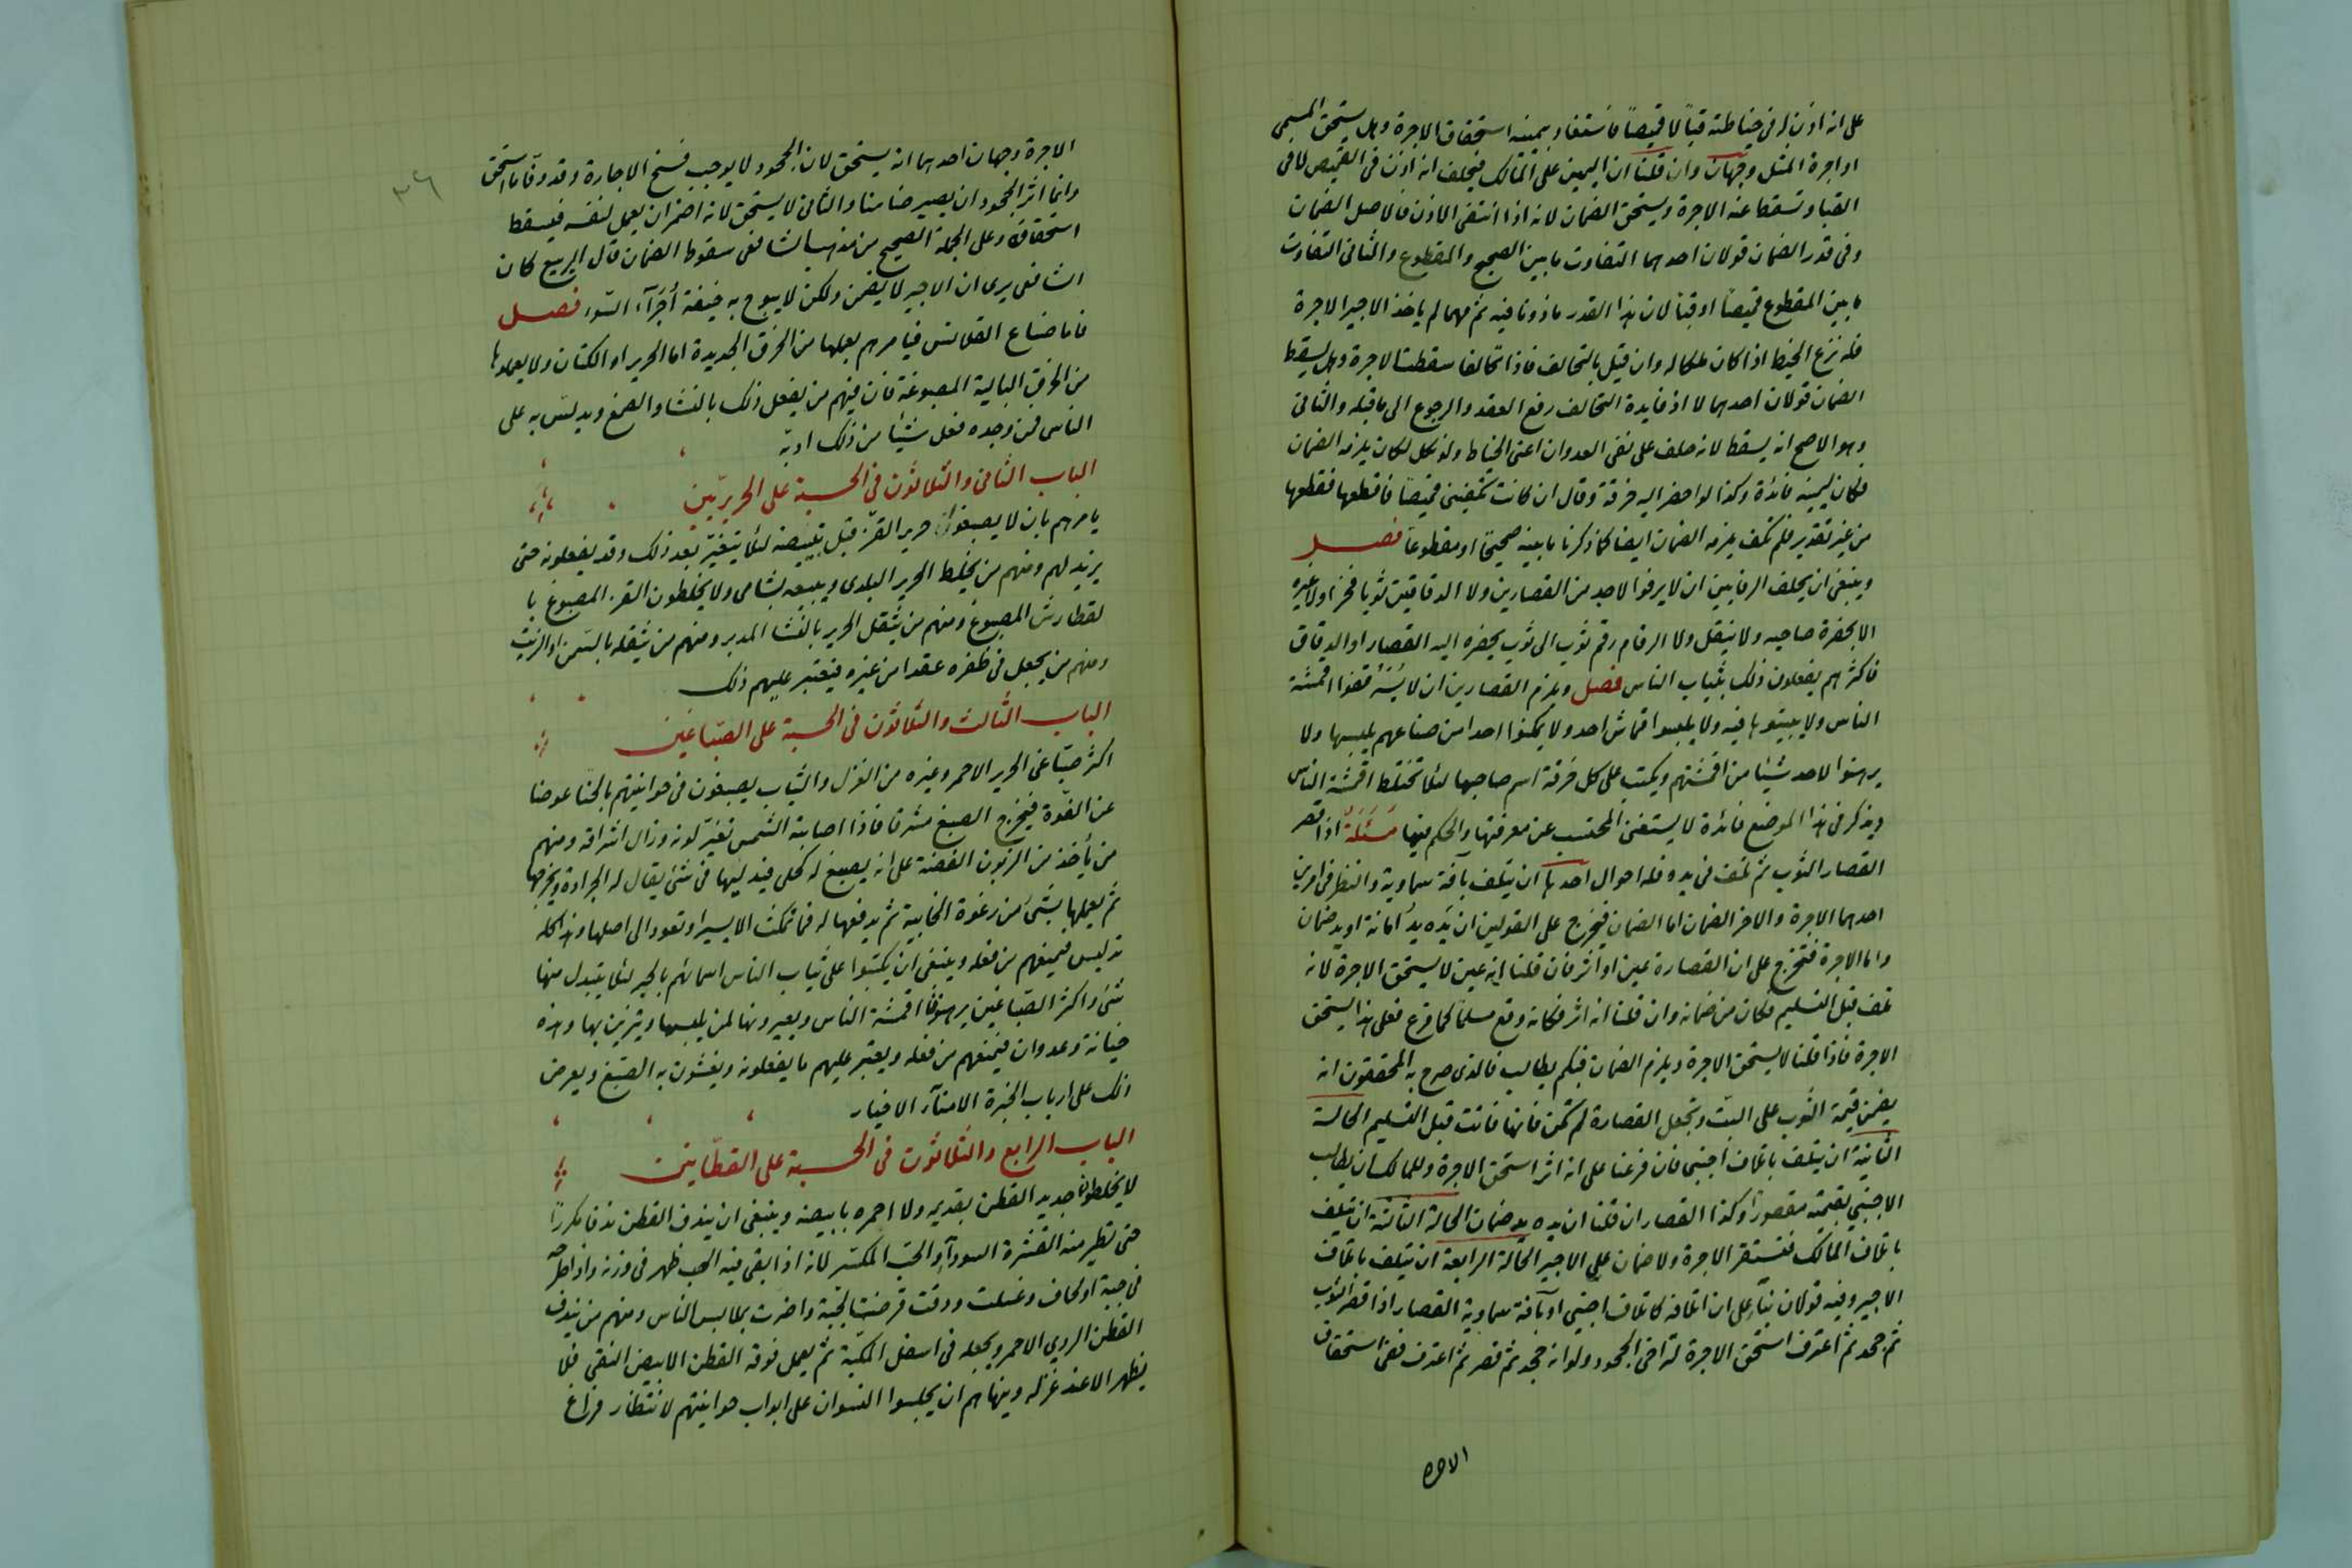 على انه اذن له فى خياطته قباً لا قميصاً فاستفاد بيمينه استحقاق الاجرة وهل يستحق المسمى
او اجرة المثل وجهان وان قلنا ان اليمين على المالك فيحلف انه اذن فى القميص لا فى
القبا وتسقط عنه الاجرة ويستحق الضمان لانه اذا انتفى الاذن فالاصل الضمان
وفى قدر الضمان قولان احدهما التفاوت ما بين الصحيح والمقطوع والثانى التفاوت
ما بين المقطوع قميصاً او قباً لان هذا القدر ماذونا فيه ثم مهما لم ياخذ الاجير الاجرة
فله نزع الخيط اذا كان ملكا له وان قيل بالتحالف فاذا تحالفا سقطت الاجرة وهل يسقط
الضمان قولان احدهما لا اذ فايدة التحالف رفع العقد والرجوع الى ما قبله والثانى
وهو الاصح انه يسقط لانه حلف على نفى العدوان اعنى الخياط ولو نكل لكان يلزمه الضمان
فكان ليمينه فائدة وكذا لو احضر اليه خرقة وقال ان كانت تكفينى قميصاً فاقطعها فقطعها
من غير تقدير فلم تكف يلزمه الضمان ايضا كما ذكرنا ما بينه صحيحًا او مقطوعاً فصل
وينبغى ان يحلف الرفايين ان لا يرفوا لاحد من القصارين ولا الدقاقين ثوبا فخزا ولا غيره
الا بحضرة صاحبه ولا ينقل ولا الرقام رقم ثوب الى ثوب يحضره اليه القصار او الدقاق
فاكثرهم يفعلون ذلك بثياب الناس فصل ويلزم القصارين ان لا اقمشة
الناس ولا فيه ولا يلبسوا قماش احد ولا يمكنوا احدا من صناعهم يلبسها ولا
يرهنوا لاحد شيئا من اقمشتهم ويكتب على كل خرقة اسم صاحبها لئلا تختلط اقمشة الناس
ويذكر فى هذا الموضع فائدة لا يستغنى المحتسب عن معرفتها والحكم فيها مسئلة اذا قصر
القصار الثوب ثم تلف فى يده فله احوال احدها ان يتلف بآفة سماوية والنظر فى امرين
احدهما الاجرة والاخر الضمان اما الضمان فيخرج على القولين ان يده يد امانة او يد ضمان
واما الاجرة فتخرج على ان القصارة عين او اثر فان قلنا انه عين لا يستحق الاجرة لانه
تلف قبل التسليم فكان من ضمانه وان قلنا انه اثر فكانه وقع مسلما كما فرغ فعلى هذا يستحق
الاجرة فاذا قلنا لا يستحق الاجرة ويلزم الضمان فبكم يطالب فالذى صرح به المحققون انه
يضمن قيمة الثوب على البت وتجعل القصارة لم تكن فانها فاتت قبل التسليم الحالة
الثانية ان يتلف باتلاف اجنبى فان فرعنا على انه اثر استحق الاجرة وللمالك ان يطالب
الاجنبى بقيمته مقصوراً وكذا القصار ان قلنا ان يده يد ضمان الحالة الثالثة ان يتلف
باتلاف المالك فتستقر الاجرة ولا ضمان على الاجير الحالة الرابعة ان يتلف باتلاف
الاجير وفيه قولان بناء على ان اتلافه كاتلاف اجنبى او بآفة سماوية القصار اذا قصر الثوب
ثم جحد ثم اعترف استحق الاجرة ثم اخفى الجحود ولو انه جحد ثم قصر ثم اعترف ففى استحقاق
الاجره
٣٦
الاجرة وجهان احدهما انه يستحق لان الجحود لا يوجب فسخ الاجارة وقد وفا ما استحق
وانما اثر الجحود ان يصير ضامنا والثانى لا يستحق لانه اضمر ان يعمل لنفسه فيسقط
استحقاقه وعلى الجملة الصحيح من مذهب الشافعى سقوط الضمان قال الربيع كان
الشافعى يرى ان الاجير لا يضمن ولكن لا يبوح به خيفة أُجَراء السّوء فصل
فاما صناع القلانس فيامرهم بعملها من الخرق الجديدة اما الحرير او الكتان ولا يعملوها
من الخرق البالية المصبوغة فان فيهم من يفعل ذلك بالنشا والصمغ ويدلس به على
الناس فمن وجده فعل شيئا من ذلك ادبه
الباب الثانى والثلاثون فى الحسبة على الحريريين
يامرهم بان لا يصبغوا حرير القز قبل تبييضه لئلا يتغير بعد ذلك وقد يفعلونه حتى
يزيد لهم ومنهم من يخلط الحرير البلدى ويبيعه بشامى ولا يخلطون القز المصبوغ با
لقطارش المصبوغ ومنهم من يثقل الحرير بالنشا المدبر ومنهم من يثقله بالسمن او الزيت
ومنهم من يجعل فى ظفره عقدا من غيره فيعتبر عليهم ذلك
الباب الثالث والثلاثون فى الحسبة على الصبّاغين
اكثر صبّاغى الحرير الاحمر وغيره من الغزل والثياب يصبغون فى حوانيتهم بالحنا عوضا
عن الفوّة فيخرج الصبغ مشرقا فاذا اصابته الشمس تغيّر لونه وزال اشراقه ومنهم
من يأخذ من الزبون الفضة على انه يصبغ له كحلى فيدليها فى شئ يقال له الجرادة ويخرجها
ثم يعملها بشئ من رغوة الخابية ثم يدفعها له فما تمكث الا يسيرا وتعود الى اصلها وهذا كله
تدليس فيمنعهم من فعله وينبغى ان يكتبوا على ثياب الناس اسمائهم بالحبر لئلا يتبدل منها
شئ واكثر الصبّاغين يرهنون اقمشة الناس ويعيرونها لمن يلبسها ويتزين بها وهذه
خيانة وعدوان فيمنعهم من فعله ويعتبر عليهم ما يفعلونه ويغشون به الصبغ ويعرض
ذلك على ارباب الخبرة الامناء الاخيار
الباب الرابع والثلاثون فى الحسبة على القطّانين
لا يخلطوا جديد القطن بقديمه ولا احمره بابيضه وينبغى ان يندف القطن ندفا مكرراً
حتى تطير منه القشرة السوداء والحب المكسّر لانه اذا بقى فيه الحب ظهر فى وزنه واذا طرحه
فى جبة او لحاف وغسلت ودقت قرضت الجبّة واضرت بملابس الناس ومنهم من يندف
القطن الردي الاحمر ويجعله فى اسفل المكبّة ثم يعمل فوقه القطن الابيض النقى فلا
يظهر الا عند غزله وينهاهم ان يجلسوا النسوان على ابواب حوانيتهم لانتظار فراغ